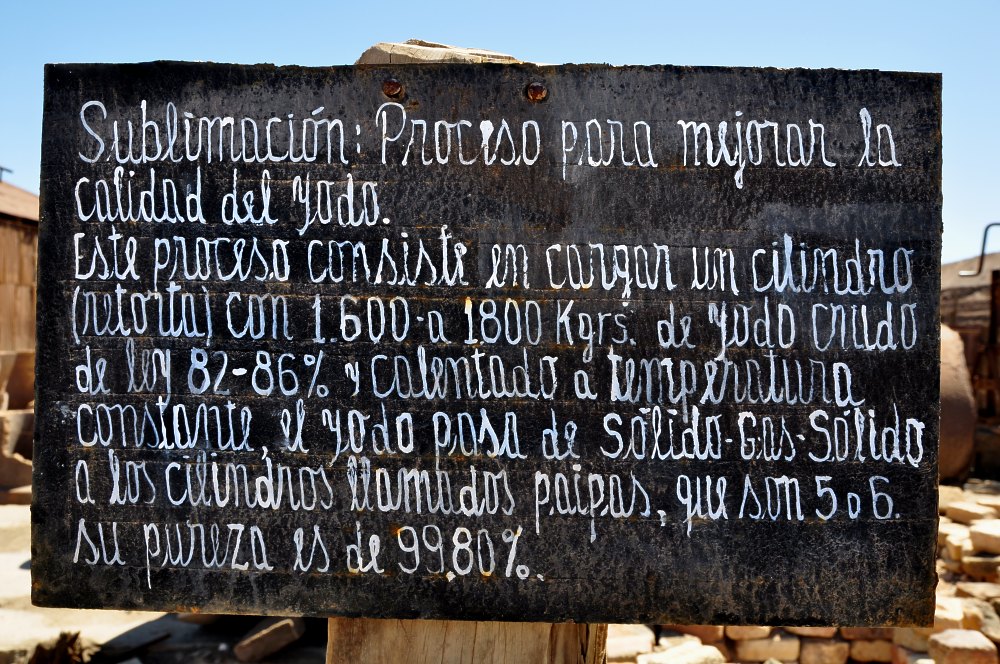 Sublimación: Proceso para mejorar la
calidad del yodo.
Este proceso consiste en cargar un cilindro
(retorta) con 1.600-a 1800 Kgrs. de yodo crudo
de ley 82-86% y calentado a temperatura
constante, el yodo pasa de Sólido-Gas-Sólido
a los cilindros llamados paipas, que son 5 o 6.
su pureza es de 99.80%.